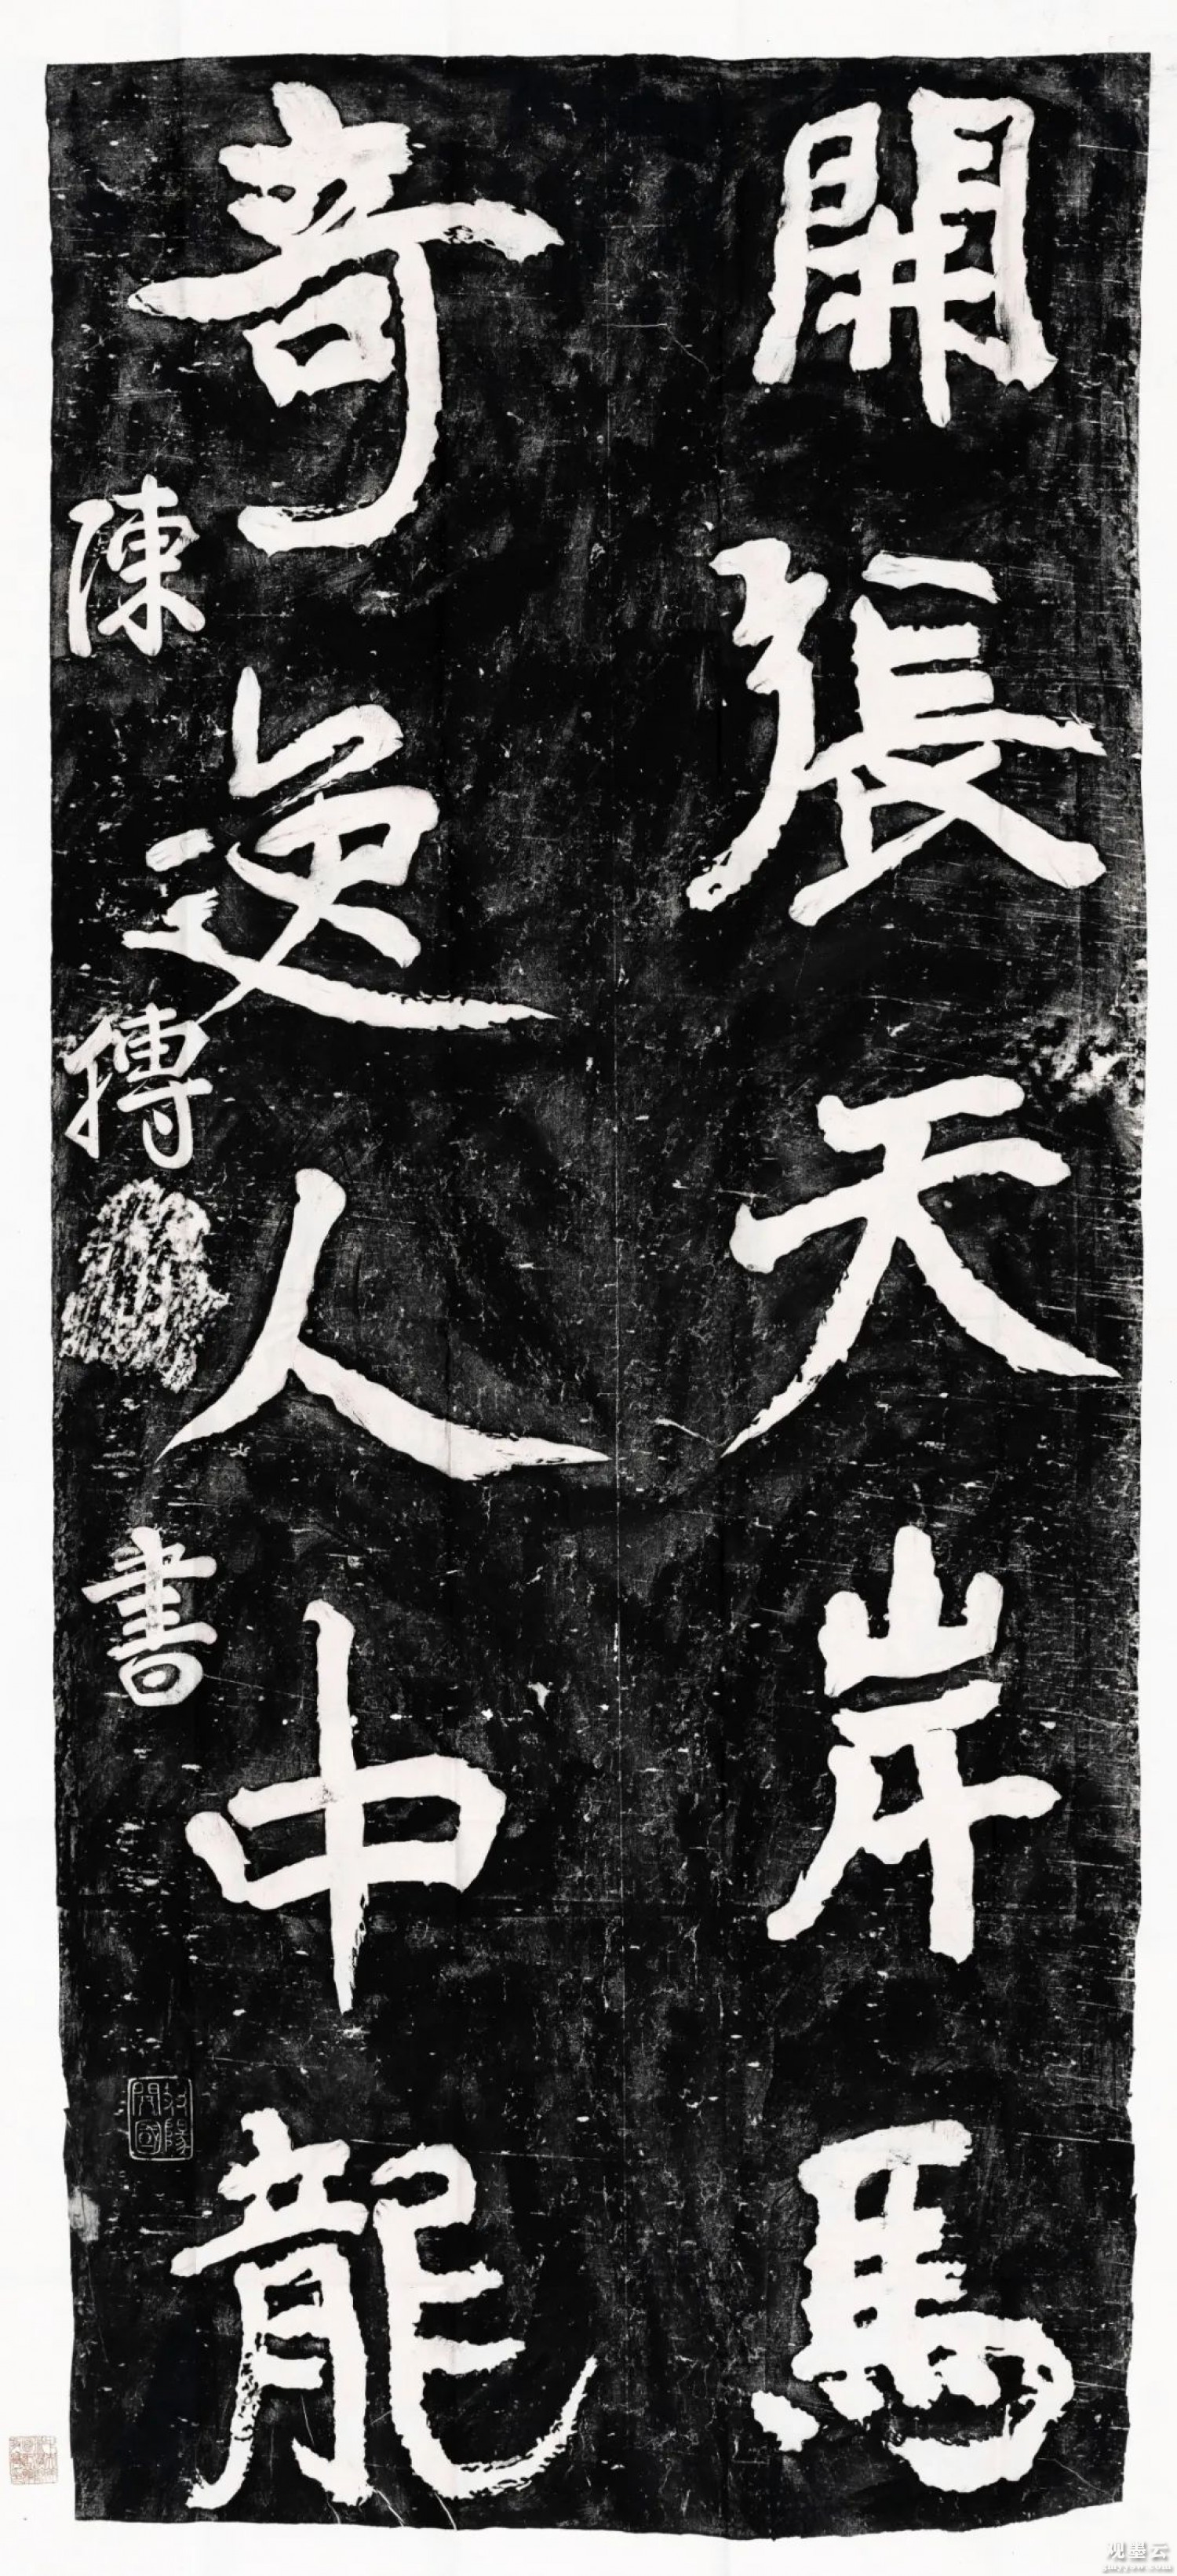 開張天岸馬
奇逸人中龍
陳摶書
观墨云